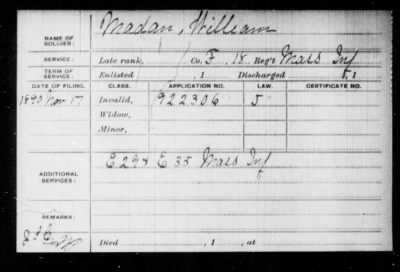 Madan, William
NAME OF SOLDIER:
SERVICE: Late rank, Co. F, 18 Reg't Mass Inf
TERM OF SERVICE: Enlisted , 1 Discharged , 1
DATE OF FILING. CLASS. APPLICATION NO. LAW. CERTIFICATE NO.
1890 Nov 17 Invalid, 922306 J
Widow,
Minor,
ADDITIONAL SERVICES: E 29 & E 35 Mass Inf
REMARKS:
Died , 1 , at